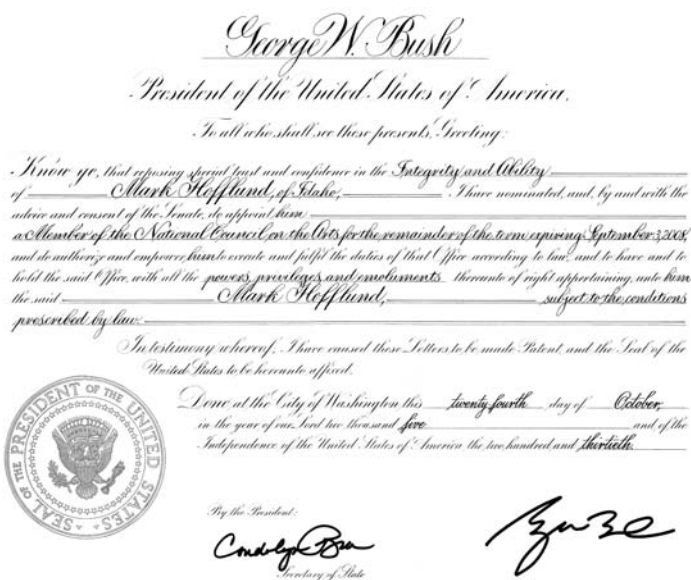 George W. Bush
President of the United States of America.
To all who shall see these presents, Greeting:
Know ye, that reposing special trust and confidence in the Integrity and Ability
of Mark Hofflund, of Idaho, I have nominated, and, by and with the
advice and consent of the Senate, do appoint him
a Member of the National Council on the Arts for the remainder of the term expiring September 3, 2008,
and do authorize and empower him to execute and fulfil the duties of that Office according to law, and to have and to
hold the said Office, with all the powers, privileges, and emoluments thereunto of right appertaining, unto him
the said Mark Hofflund, subject to the conditions
prescribed by law.
In testimony whereof, I have caused these Letters to be made Patent, and the Seal of the
United States to be hereunto affixed.
Done at the City of Washington this twenty fourth day of October,
in the year of our Lord two thousand five and of the
Independence of the United States of America the two hundred and thirtieth.
SEAL OF THE PRESIDENT OF THE UNITED STATES
By the President:
Secretary of State